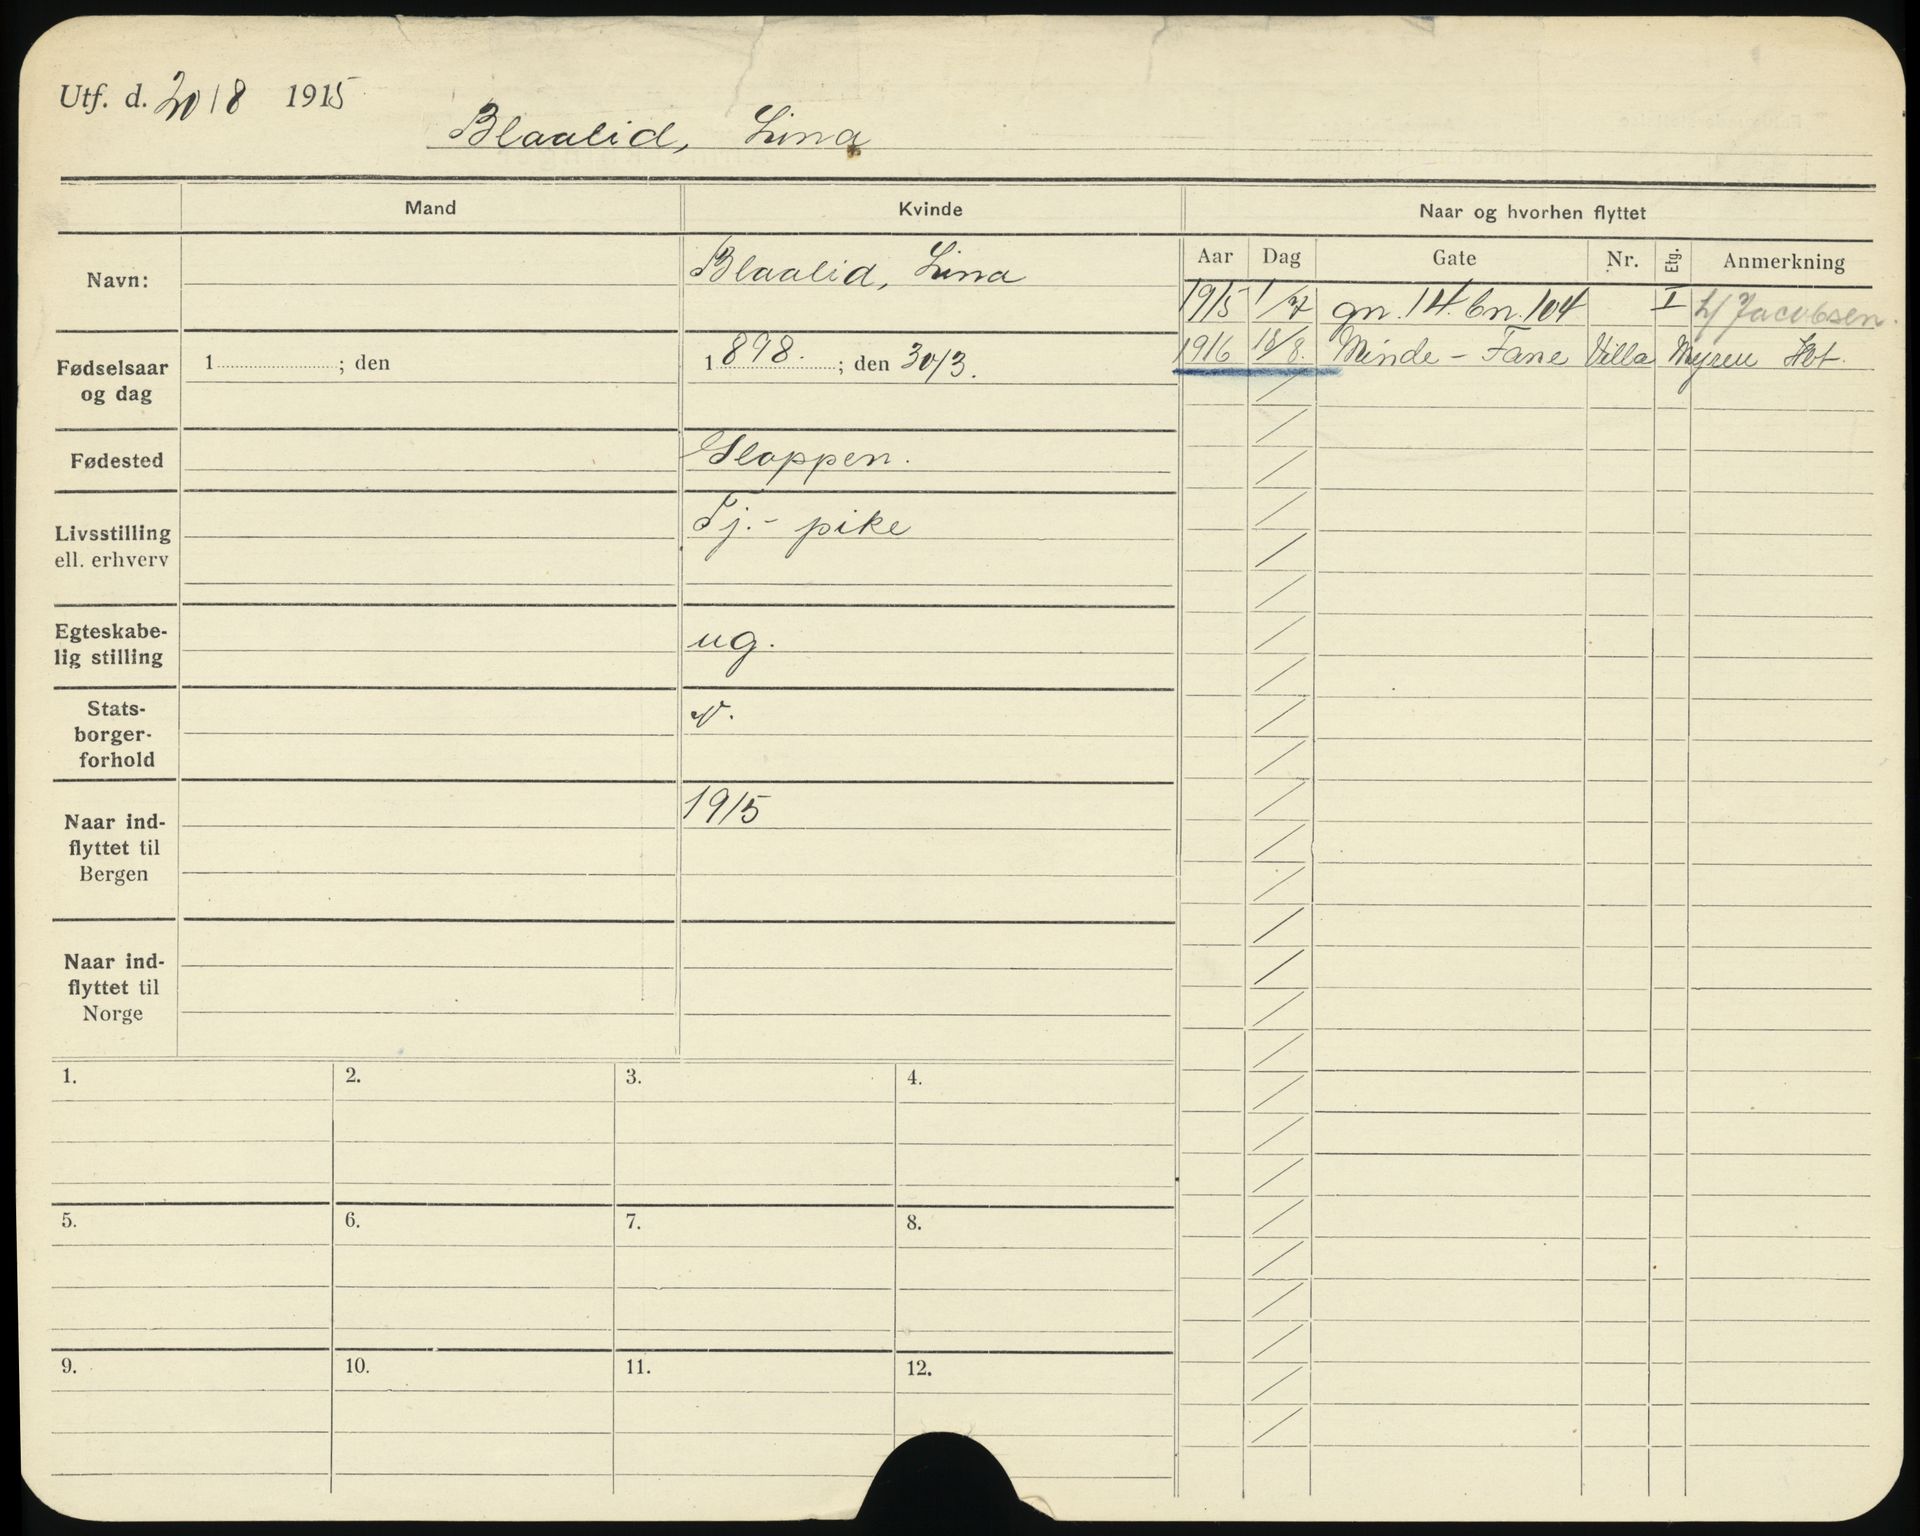 Utf. d. 20/8 1915
Blaalid, Lina
Mand
Kvinde
Naar og hvorhen flyttet
Navn:
Blaalid, Lina
Aar Dag Gate Nr. Etg. Anmerkning
1915 1/7 gn. 14. bn. 104 I h/ Jacobsen.
1916 18/8. Minde - Fane Villa Myren
Fødselsaar
og dag
1 ; den
1898. ; den 30/3.
Fødested
Gloppen.
Livsstilling
ell. erhverv
Tj.- pike
Egteskabe-
lig stilling
ug.
Stats-
borger-
forhold
N.
Naar ind-
flyttet til
Bergen
1915
Naar ind-
flyttet til
Norge
1. 2. 3. 4.
5. 6. 7. 8.
9. 10. 11. 12.